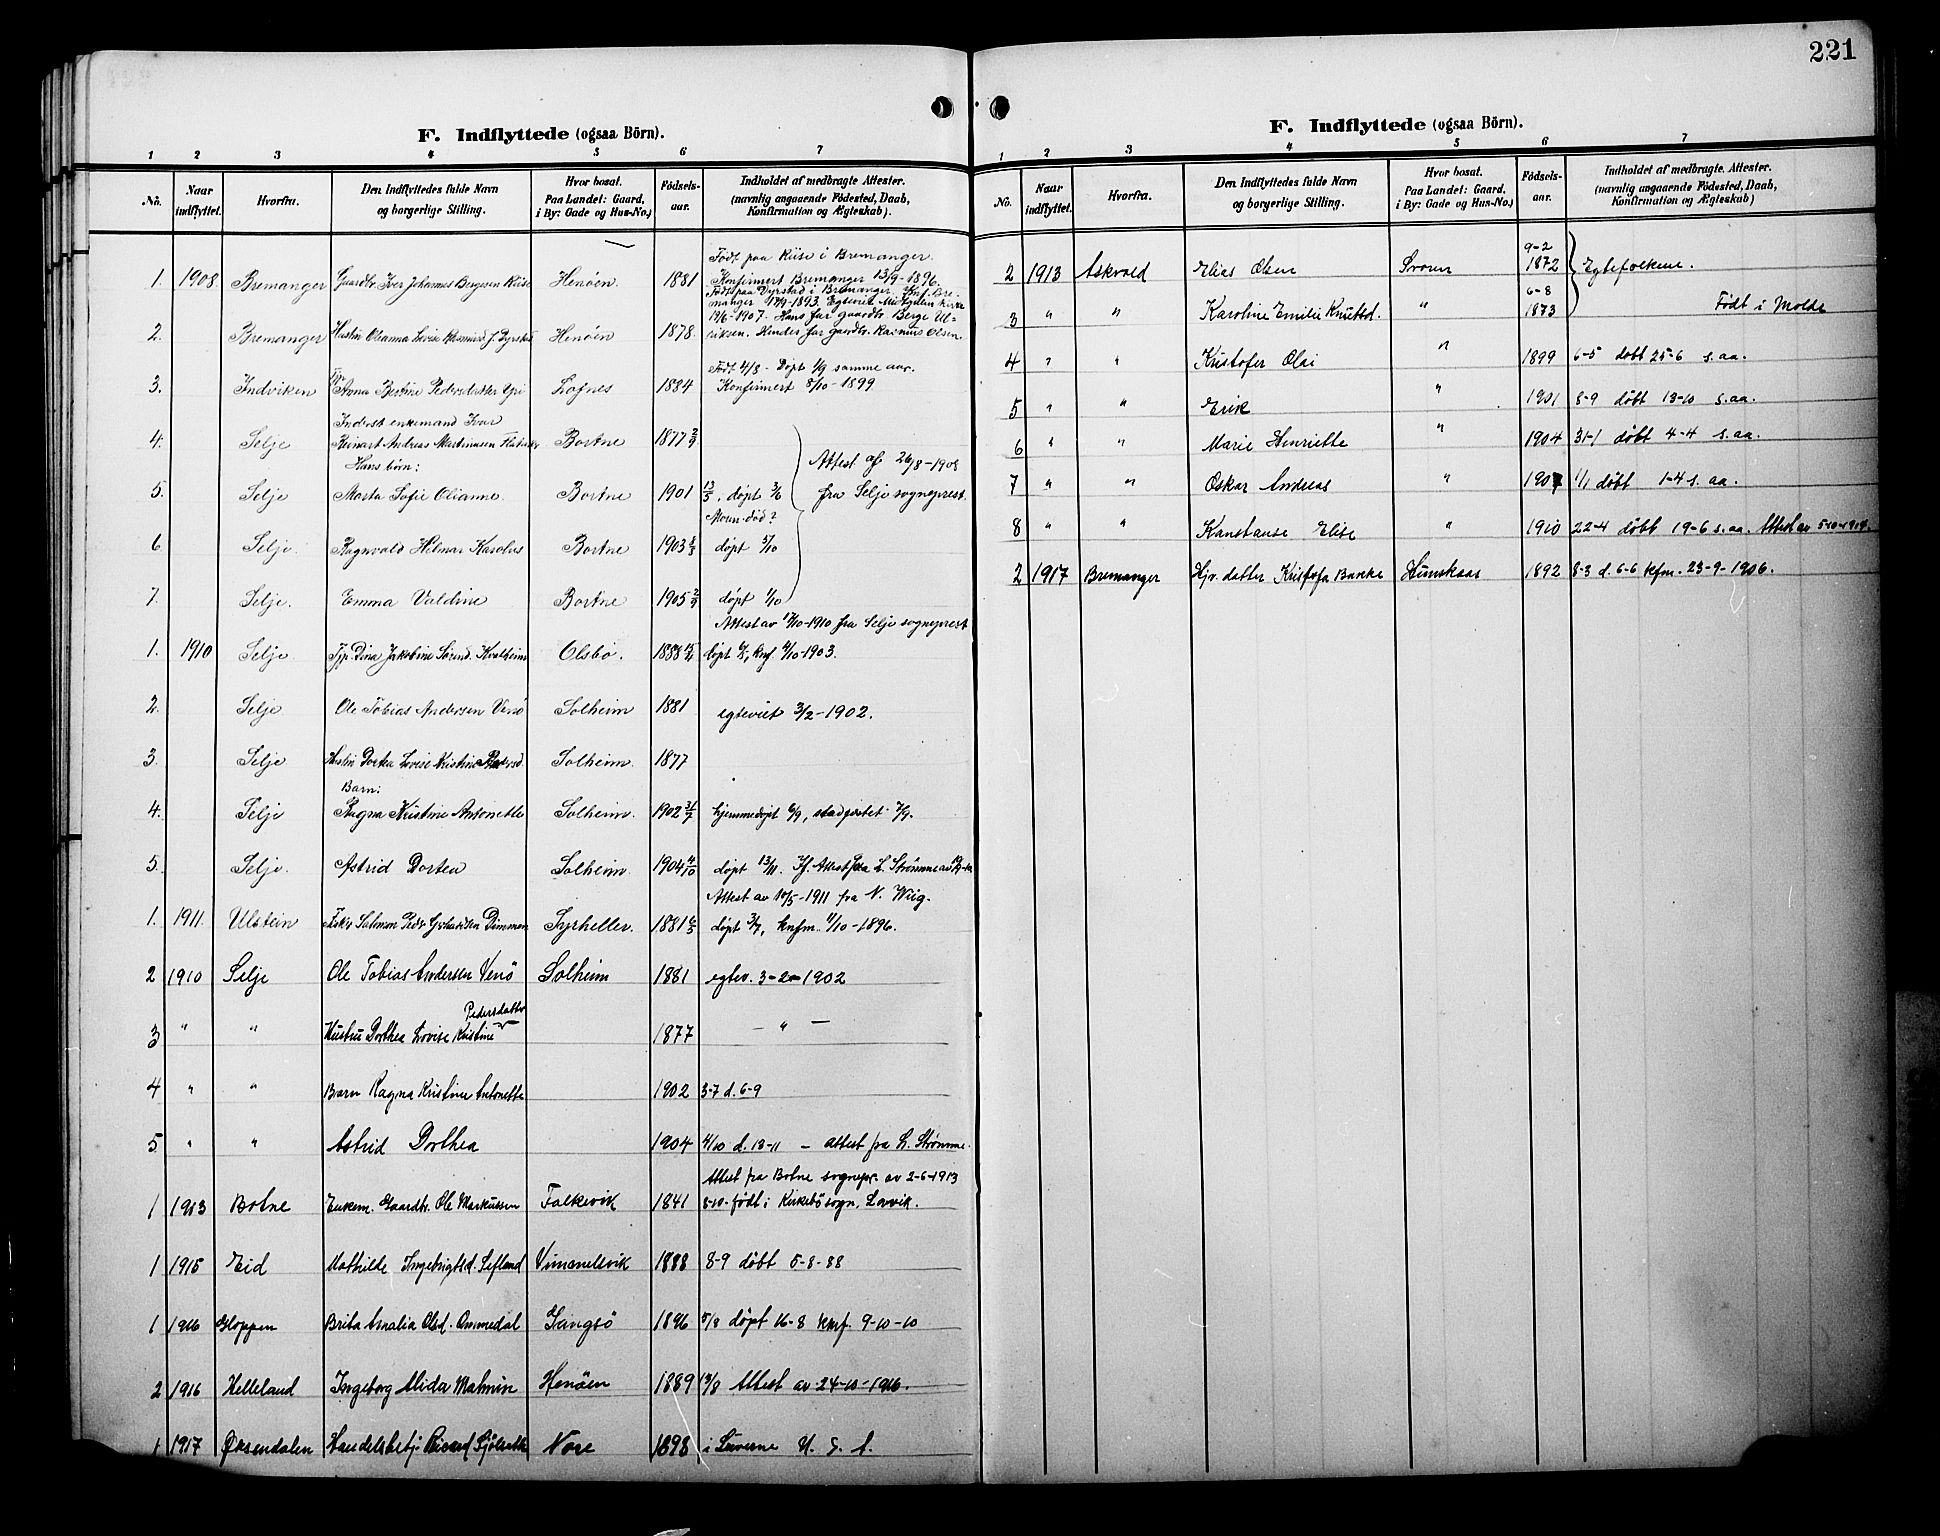 221
F. Indflyttede (ogsaa Börn).
1 2 3 4 5 6 7
No. Naar indflyttet. Hvorfra. Den Indflyttedes fulde Navn og borgerlige Stilling. Hvor bosat. Paa Landet: Gaard, i By: Gade og Hus-No.) Födsels-aar. Indholdet af medbragte Attester. (navnlig angaaende Födested, Daab, Konfirmation og Ægteskab).
Födt paa Riise i Bremanger.
1. 1908 Bremanger Gaardbr. Iver Johannes Bergesen Riise Henöen. 1881 Konfirmert Bremanger 13/9-1896.
Födt paa Dyrstad i Bremanger. Konf. Bre-
manger 17/9-1893. Egteviet Midtgulen kirke
19/6-1907. Hans far gaardbr. Berge Ul-
2. Bremanger Hustru Oleanna Lovise Rasmusd. f. Dyrstad Henöen 1878. riksen. Hendes far gaardbr. Rasmus Olsen.
Födt 4/8 - Döpt 1/9 samme aar.
3. Indviken Anna Bertine Pedersdatter Lofnes 1884 Konfirmert 8/10-1899
Inderst enkemand Ivar
4. Selje Reinart Andreas Martinusen Bortne 1877 2/9
Hans börn: Attest af 26/8-1908
5. Selje Marta Sofie Olianne Bortne 1901 13/5, döpt 3/6 fra Selje sogneprest.
Moren död?
6 Selje Ragnvald Hilmar Karolus Bortne 1903 döpt 5/10
7. Selje. Emma Valdine Bortne 1905 2/9 döpt 1/10
Attest av 17/10-1910 fra Selje sogneprest
1. 1910 Selje Tjp. Dina Jakobine Sörend. Kvalheim Olsbö. 1888 döpt knf 4/10-1903.
2. Selje Ole Tobias Andersen Venö Solheim 1881 egteviet 3/2-1902.
3. Selje Hustru Dortea Lovise Kristine Pedersd. Solheim 1877
Barn:
4. Selje Ragna Kristine Antonette Solheim. 1902 31/7 hjemmedöpt 6/9, stadfestet 7/9.
5. Selje. Astrid Dortea Solheim 1904 4/10 döpt 13/11. If. Attest fra L. Strömme av
Attest av 10/5-1911 fra N. Wiig.
1. 1911 Ulstein Fisker Salomon Peder Dimmen Syrheller. 1881 döpt 3/7, knfm. 11/10-1896.
2 1910 Selje Ole Tobias Andersen Venö Solheim 1881 egtev. 3-2-1902
Pedersdatter
3 " " Hustru Dorthea Lovise Kristine 1877 - " -
4 " " Barn Ragna Kristine Antonette 1902 3-7 d. 6-9
5 " " Astrid Dorthea 1904 4/10 d. 13-11 - attest fra L. Strömme.
Attest fra Botne sognepr. av 2-6-1913
1 1913 Botne Enkem. Gaardbr. Ole Markussen Falkevik 1841 8-10- födt i Kirkebö sogn, Lavvik.
1 1915 Eid Mathilde Ingebrigtsd. Sefland Vimmelsvik 1888 8-9 döbt 5-8-88
1 1916 Gloppen Brita Amalia Olsd. Ommedal Gangsö 1896 5/8 döpt 16-8 knf. 9-10-10
2 1916 Helleland Ingeborg Alida Malmin Henöen 1889 13/8 Attest av 24-10-1916.
1 1917 Öksendalen Handelsbetj. Rieard Sjölseth Nore 1898 i Luverne U. S. A.
F. Indflyttede (ogsaa Börn).
1 2 3 4 5 6 7
No. Naar indflyttet. Hvorfra. Den Indflyttedes fulde Navn og borgerlige Stilling. Hvor bosat. Paa Landet: Gaard, i By: Gade og Hus-No.) Födsels-aar. Indholdet af medbragte Attester. (navnlig angaaende Födested, Daab, Konfirmation og Ægteskab)
9-2
2 1913 Askvold Elias Olsen Svoren 1872 Egtefolkene.
6-8
3 " " Karoline Emilie Knutsd. " 1873 Födt i Molde
4 " " Kristofer Olai " 1899 6-5 döbt 25-6 s. aa.
5 " " Erik " 1901 8-9 döbt 13-10 s. aa.
6 " " Marie Henriette " 1904 31-1 döbt 4-4 s. aa.
7 " " Oskar Andreas " 1907 1/1 döbt 1-4 s. aa.
8 " " Konstanse Elise " 1910 22-4 döbt 19-6 s. aa. Attest av 5-10-1914.
2 1917 Bremanger Hjv. datter Kristofa Bakke Hunskaar 1892 8-3 d. 6-6 kfm. 23-9-1906.